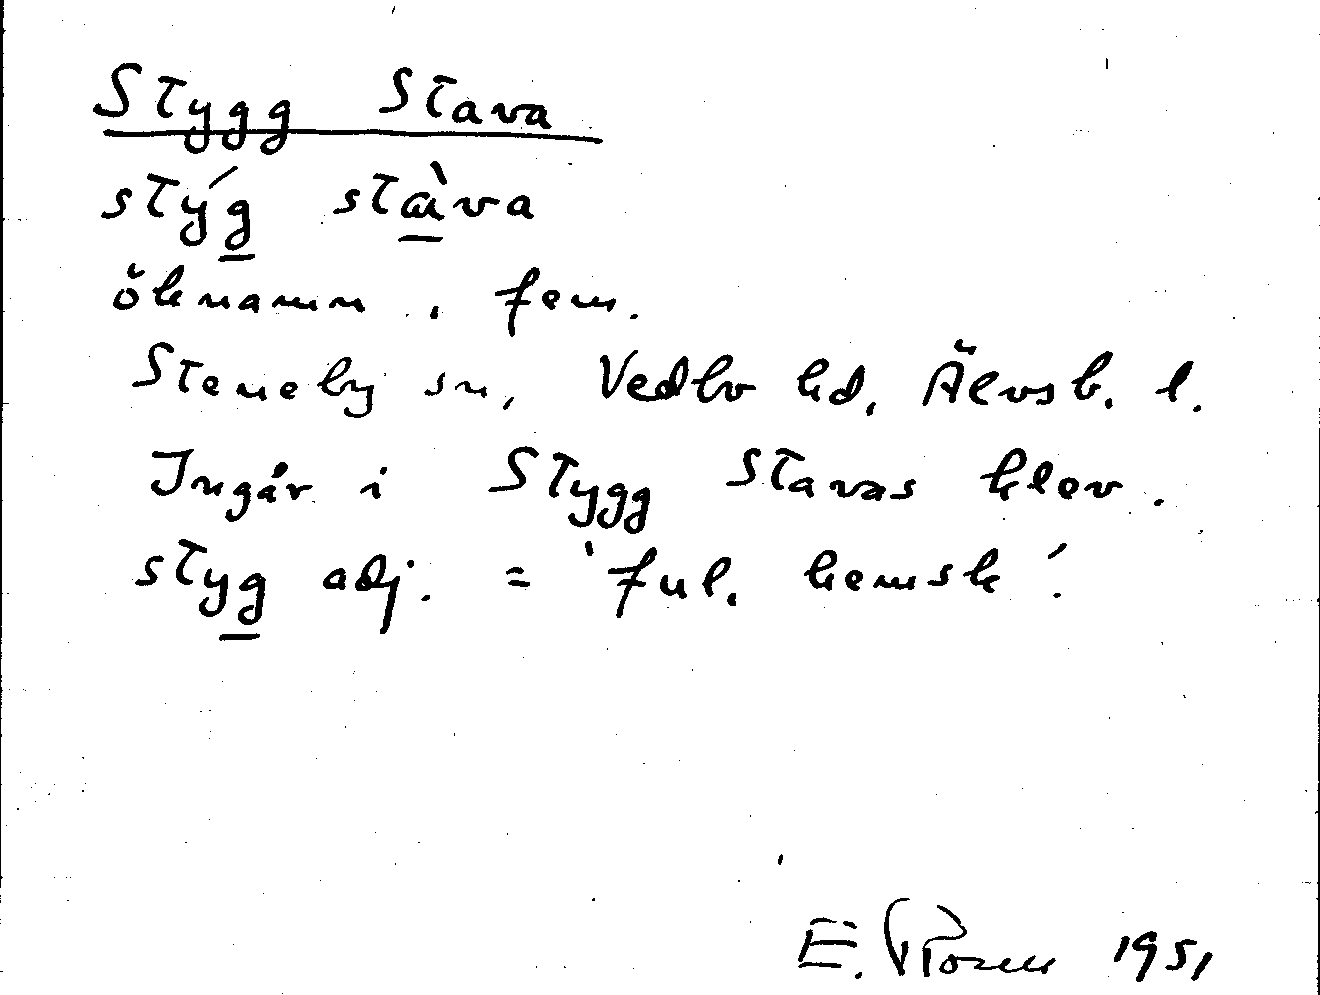 Stygg Stava
stýg stàva
öknamn, fem.
Steneby sn, Vedbo hd, Älvsb. l.
Ingår i Stygg Stavas klev.
styg adj. = 'ful, hemsk'.
E. Rosell 1951